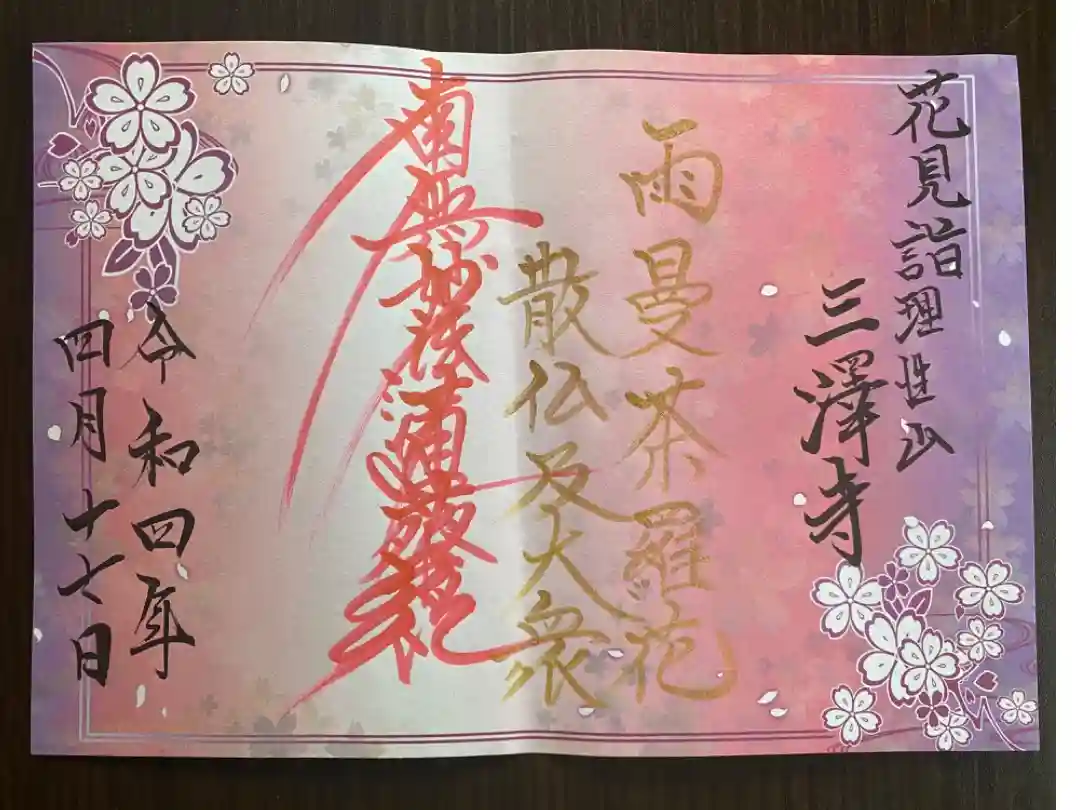 花見詣理性山
三澤寺
雨曼茶羅花
散仏及大衆
南無妙法蓮華経
令和四年
四月十七日